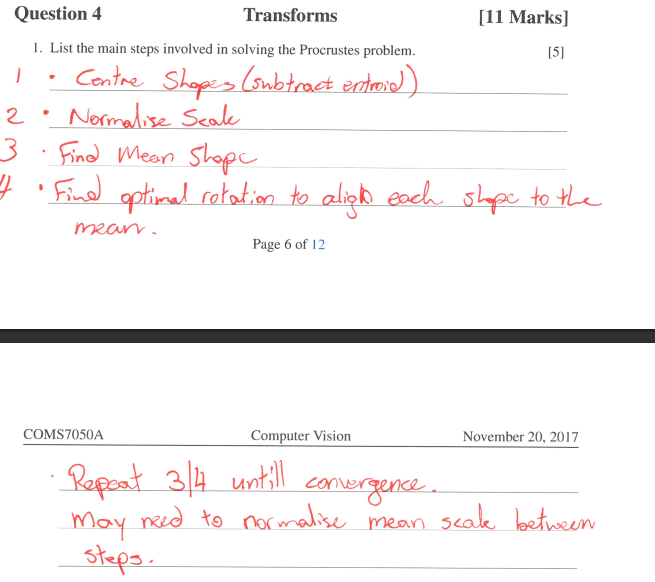 Question 4 Transforms [11 Marks]
1. List the main steps involved in solving the Procrustes problem. [5]
1 · Centre Shapes (subtract entroid)
2 · Normalise Scale
3 · Find Mean Shape
4 · Find optimal rotation to align each shape to the
mean.
Page 6 of 12
COMS7050A Computer Vision November 20, 2017
· Repeat 3/4 untill convergence.
May need to normalise mean scale between
steps.